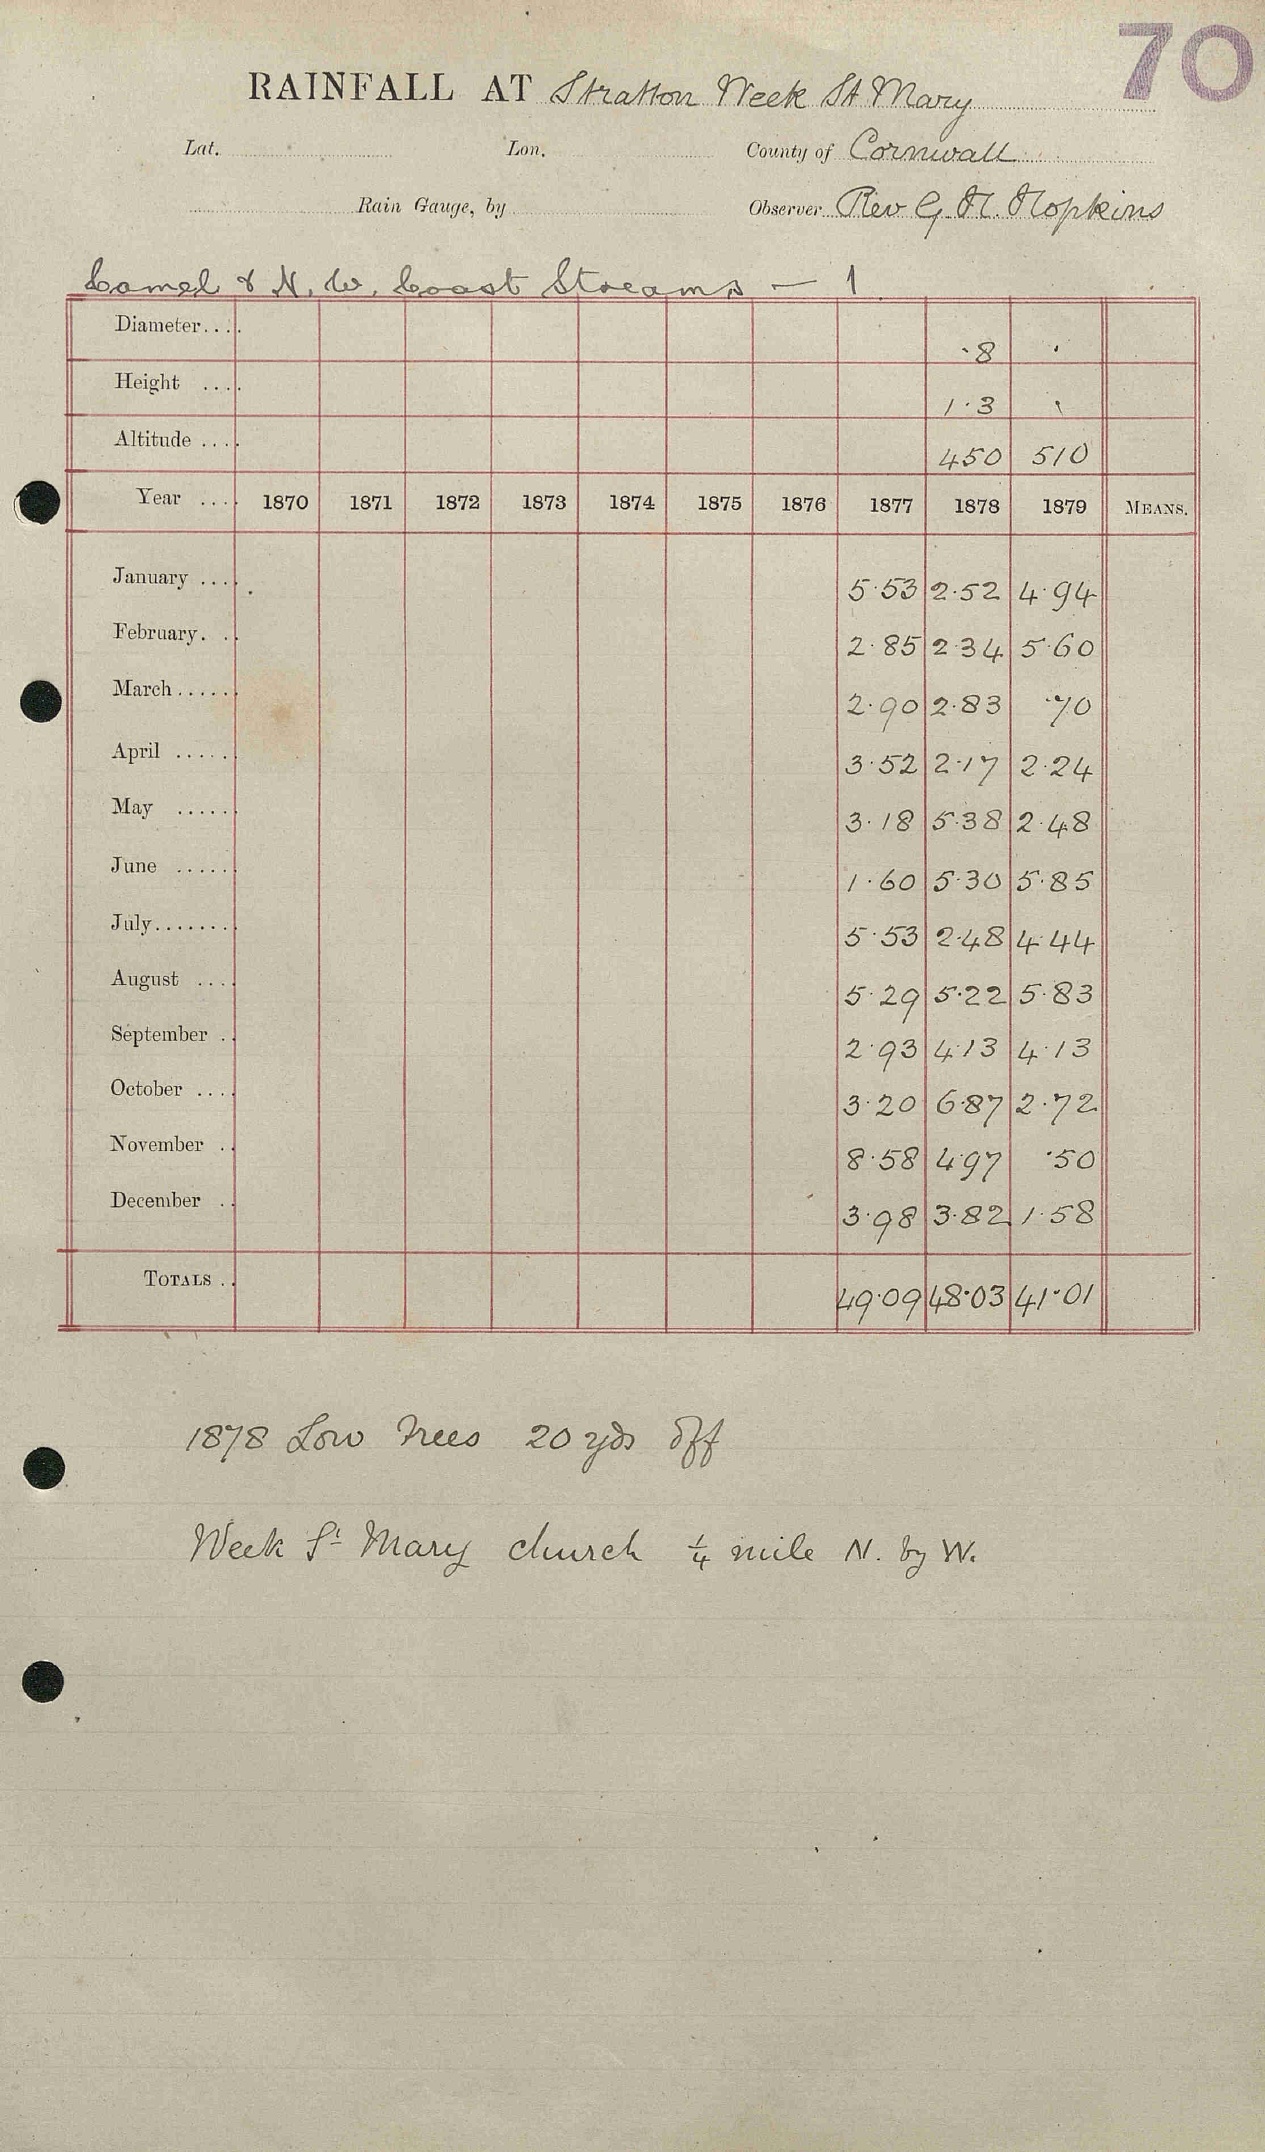 70
RAINFALL AT Stratton Week St Mary
Lat. Lon. County of Cornwall
Rain Gauge, by Observer Rev G. H. Hopkins
Camel & N. W. Coast Streams — 1
Diameter.... ·8 ·
Height .... 1·3 ·
Altitude .... 450 510
Year .... 1870 1871 1872 1873 1874 1875 1876 1877 1878 1879 MEANS.
January .... 5·53 2·52 4·94
February. .. 2·85 2·34 5·60
March...... 2·90 2·83 ·70
April ..... 3·52 2·17 2·24
May ...... 3·18 5·38 2·48
June ..... 1·60 5·30 5·85
July....... 5·53 2·48 4·44
August .... 5·29 5·22 5·83
September .. 2·93 4·13 4·13
October .... 3·20 6·87 2·72
November .. 8·58 4·97 ·50
December .. 3·98 3·82 1·58
TOTALS .. 49·09 48·03 41·01
1878 Low Trees 20 yds off
Week St Mary church 1/4 mile N. by W.